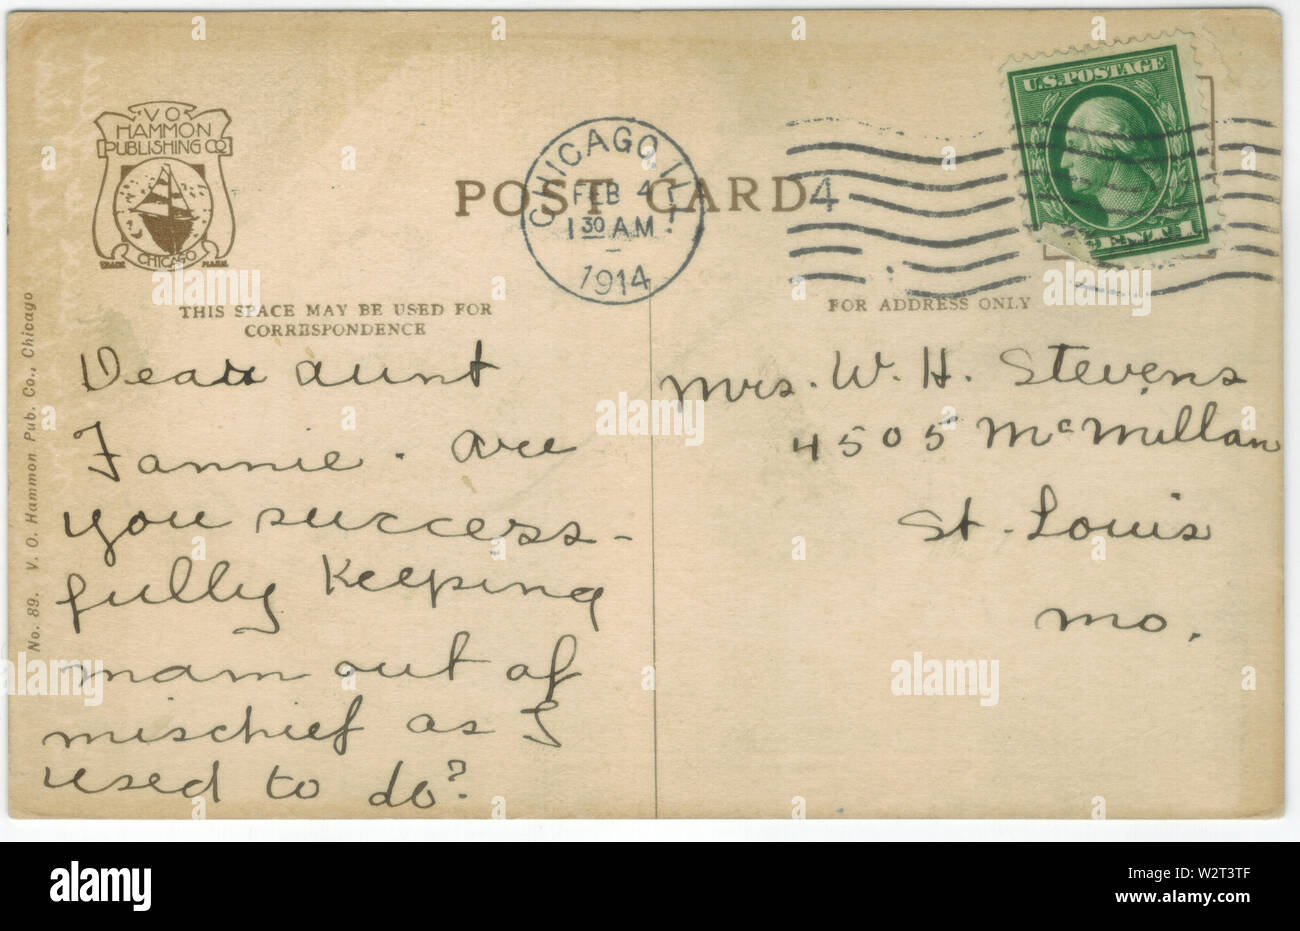 V O
HAMMON
PUBLISHING CO.
CHICAGO
TRADE MARK
POST CARD
CHICAGO, ILL.
FEB 4
1 30 AM
1914
4
U.S. POSTAGE
CENT 1
THIS SPACE MAY BE USED FOR
CORRESPONDENCE
FOR ADDRESS ONLY
No. 89. V. O. Hammon Pub. Co., Chicago
Dear aunt
Fannie. are
you success-
fully keeping
mam out of
mischief as I
used to do?
Mrs. W. H. Stevens
4505 McMillan
St. Louis
Mo.
a alamy
alamy
Image ID: W2T3TF
www.alamy.com